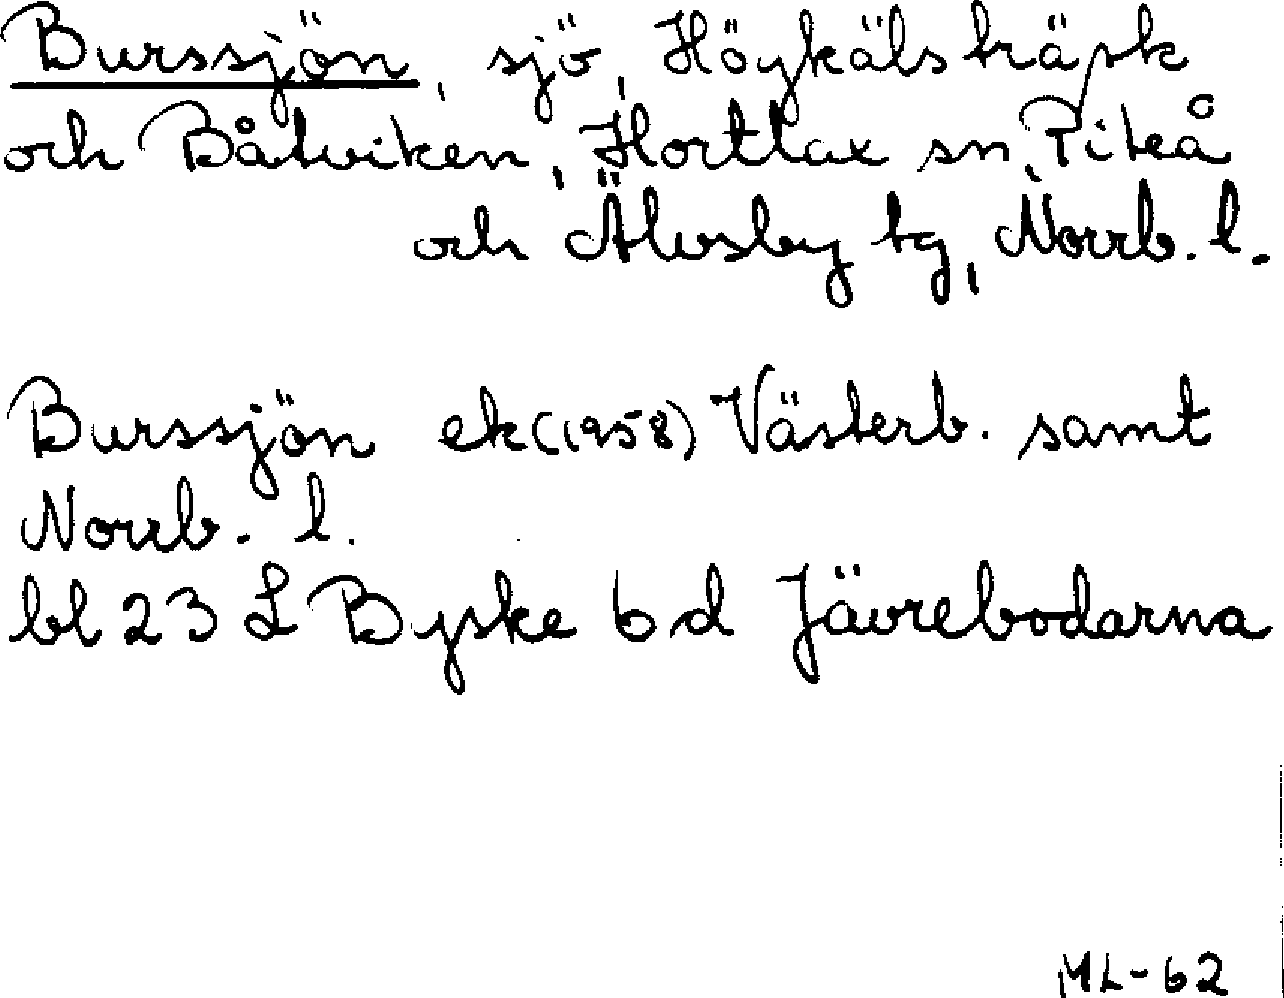 Burssjön, sjö, Höykälsträsk
och Båtviken, Hortlax sn, Piteå
och Älvsby tg, Norrb. l.
Burssjön ek (1958) Västerb. samt
Norrb. l.
bl 23 L Byske 6 d Jävrebodarna
ML-62